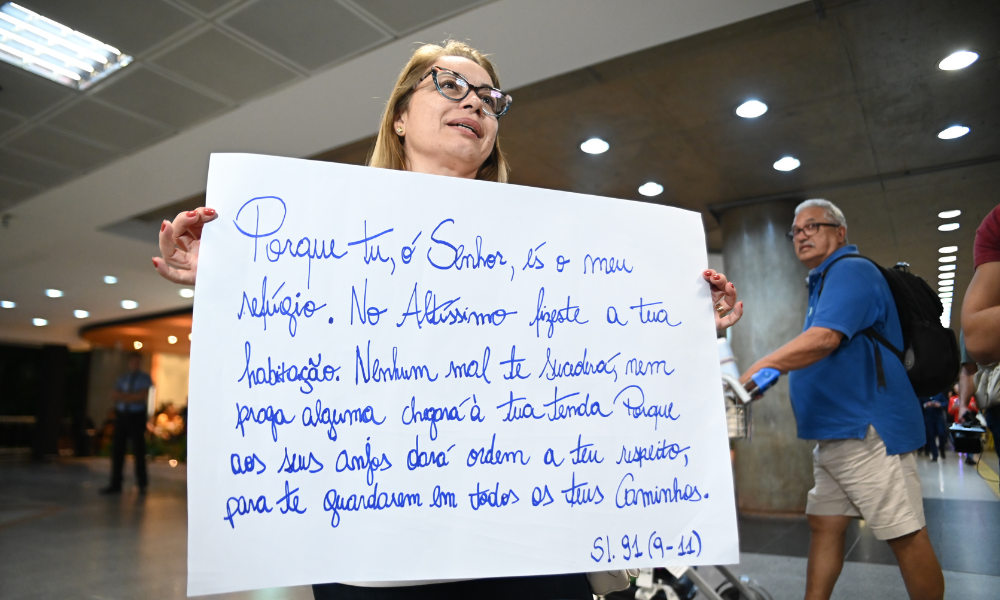 Porque tu, ó Senhor, és o meu
refúgio. No Altíssimo fizeste a tua
habitação. Nenhum mal te sucederá, nem
praga alguma chegará à tua tenda Porque
aos seus anjos dará ordem a teu respeito,
para te guardarem em todos os teus Caminhos.
Sl. 91 (9-11)